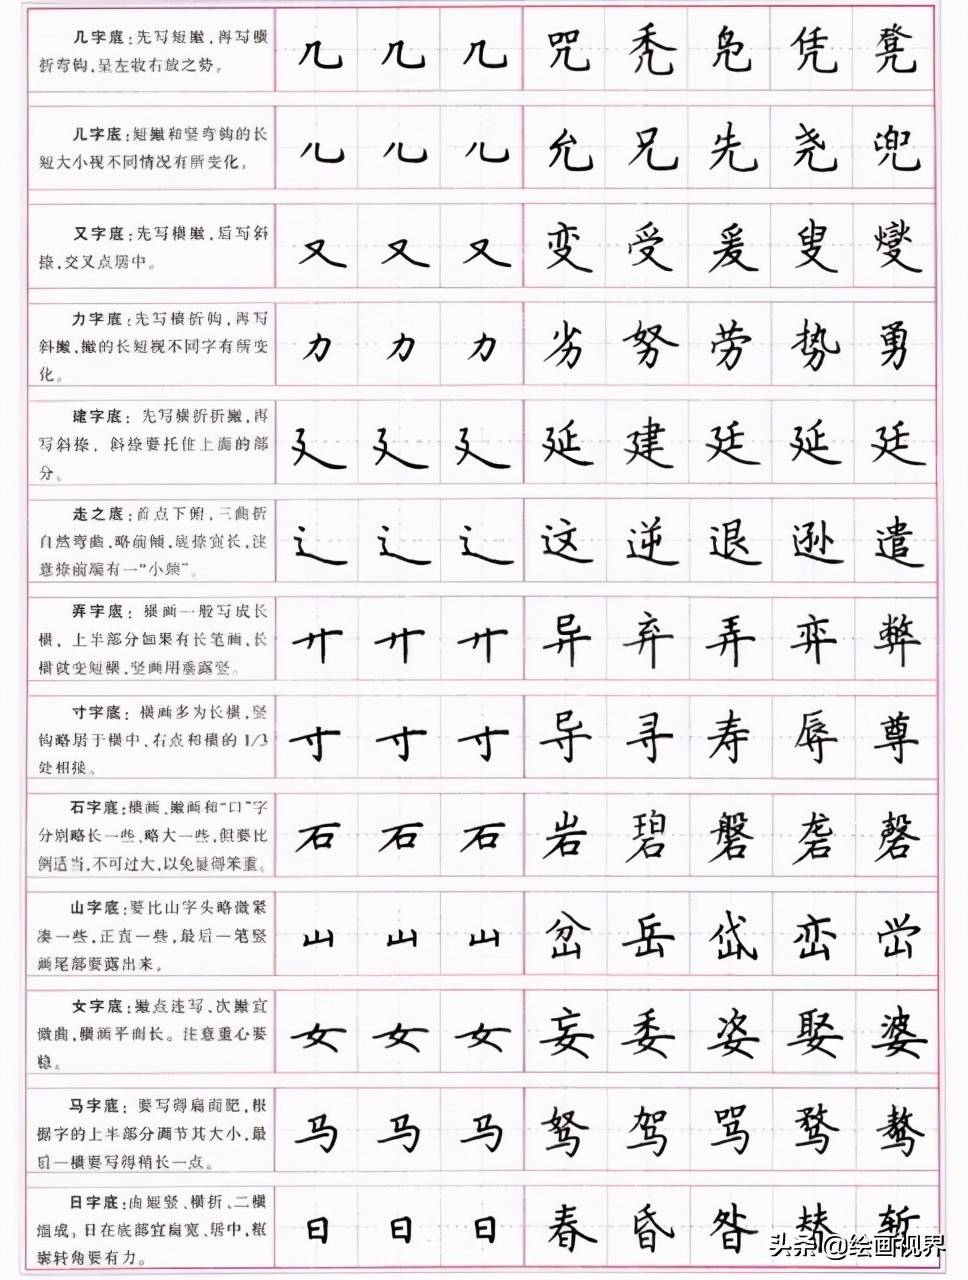 几字底：先写短撇，再写横
折弯钩，呈左收右放之势。
几 几 几 咒 秃 凫 凭 凳
儿字底：短撇和竖弯钩的长
短大小视不同情况有所变化。
儿 儿 儿 允 兄 先 尧 兜
又字底：先写横撇，后写斜
捺，交叉点居中。
又 又 又 变 受 爰 叟 燮
力字底：先写横折钩，再写
斜撇，撇的长短视不同字有所变
化。
力 力 力 劣 努 劳 势 勇
建字底：先写横折折撇，再
写斜捺，斜捺要托住上面的部
分。
廴 廴 廴 延 建 廷 延 廷
走之底：首点下俯，三曲折
自然弯曲，略前倾，底捺宜长，注
意捺前端有一“小颈”。
辶 辶 辶 这 逆 退 逊 遣
弄字底：横画一般写成长
横，上半部分如果有长笔画，长
横就变短横，竖画用垂露竖。
廾 廾 廾 异 弃 弄 弈 弊
寸字底：横画多为长横，竖
钩略居于横中、右点和横的1/3
处相接。
寸 寸 寸 导 寻 寿 辱 尊
石字底：横画、撇画和“口”字
分别略长一些、略大一些，但要比
例适当，不可过大，以免显得笨重。
石 石 石 岩 碧 磐 砻 磬
山字底：要比山字头略微紧
凑一些，正直一些，最后一笔竖
画尾部要露出来。
山 山 山 岔 岳 岱 峦 喾
女字底：撇点连写，次撇宜
微曲，横画平而长。注意重心要
稳。
女 女 女 妄 委 姿 娶 婆
马字底：要写得扁而肥，根
据字的上半部分调节其大小，最
后一横要写得稍长一点。
马 马 马 驽 驾 骂 骛 骜
日字底：由短竖、横折、二横
组成。日在底部宜扁宽、居中，框
架转角要有力。
日 日 日 春 昏 昝 替 暂
头条 @绘画视界